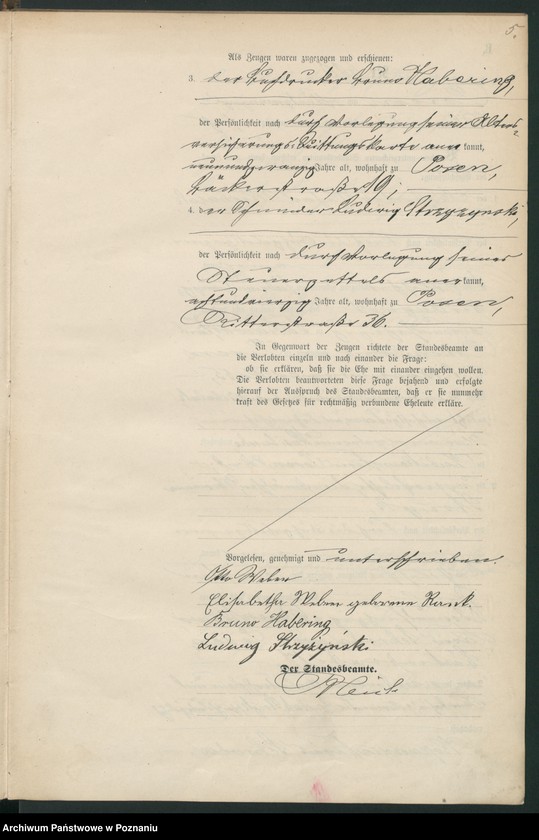 5.
Als Zeugen waren zugezogen und erschienen:
3. der Buchdrucker Bruno Habering,
der Persönlichkeit nach durch Vorlegung seiner Alters-
versicherungs-Quittungskarte aner kannt,
neunundzwanzig Jahre alt, wohnhaft zu Posen,
Bäckerstraße 19;
4. der Schneider Ludwig Strzyzynski,
der Persönlichkeit nach durch Vorlegung seines
Steuerzettels aner kannt,
achtundvierzig Jahre alt, wohnhaft zu Posen,
Ritterstraße 36.
In Gegenwart der Zeugen richtete der Standesbeamte an
die Verlobten einzeln und nach einander die Frage:
ob sie erklären, daß sie die Ehe mit einander eingehen wollen.
Die Verlobten beantworteten diese Frage bejahend und erfolgte
hierauf der Ausspruch des Standesbeamten, daß er sie nunmehr
kraft des Gesetzes für rechtmäßig verbundene Eheleute erkläre.
Vorgelesen, genehmigt und unterschrieben.
Otto Weber
Elisabetha Weber geborene Rank.
Bruno Habering
Ludwig Strzyżyński
Der Standesbeamte.
Archiwum Państwowe w Poznaniu